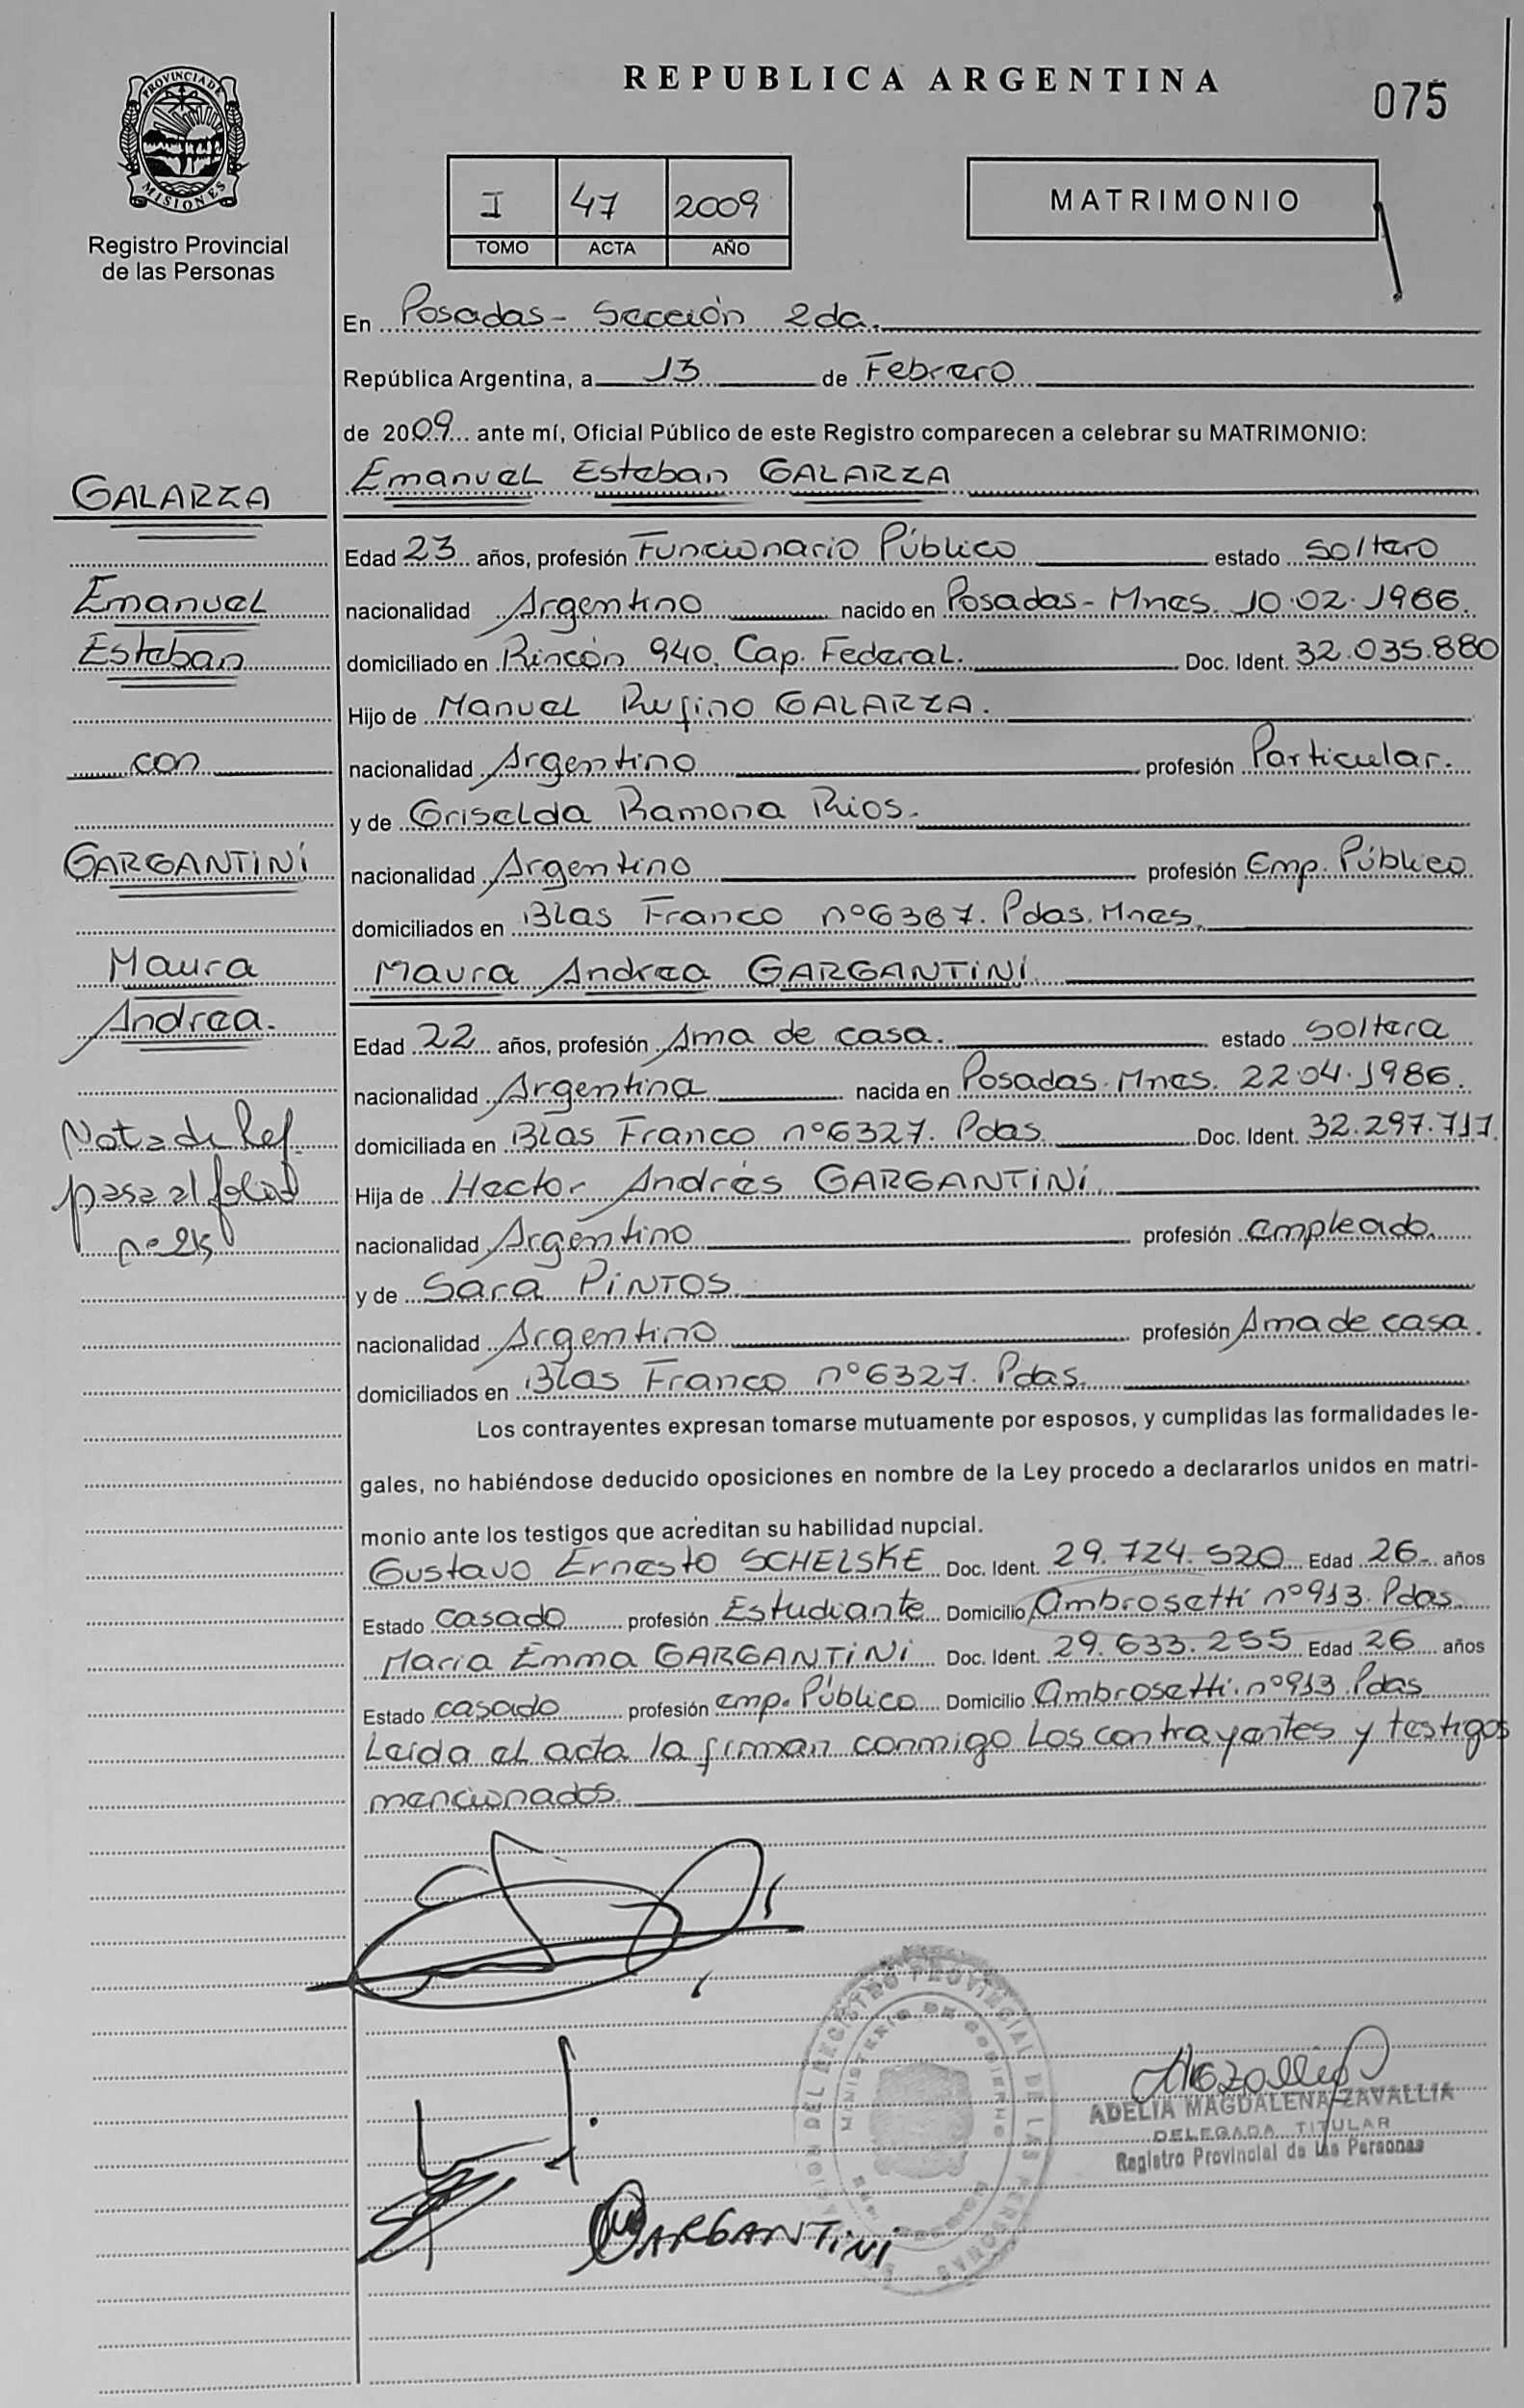 REPUBLICA ARGENTINA
075
PROVINCIA DE
MISIONES
Registro Provincial
de las Personas
I 47 2009
TOMO ACTA AÑO
MATRIMONIO
En Posadas - Sección 2da.
República Argentina, a 13 de Febrero
de 2009 ante mí, Oficial Público de este Registro comparecen a celebrar su MATRIMONIO:
Emanuel Esteban GALARZA
Edad 23 años, profesión Funcionario Público estado soltero
nacionalidad Argentino nacido en Posadas - Mnes. 10.02.1986.
domiciliado en Rincón 940. Cap. Federal. Doc. Ident. 32.035.880
Hijo de Manuel Rufino GALARZA.
nacionalidad Argentino profesión Particular.
y de Griselda Ramona Rios.
nacionalidad Argentino profesión Emp. Público
domiciliados en Blas Franco nº6367. Pdas. Mnes.
Maura Andrea GARGANTINI
Edad 22 años, profesión Ama de casa. estado soltera
nacionalidad Argentina nacida en Posadas. Mnes. 22.04.1986.
domiciliada en Blas Franco nº6327. Pdas. Doc. Ident. 32.297.717.
Hija de Hector Andrés GARGANTINI.
nacionalidad Argentino profesión empleado.
y de Sara PINTOS.
nacionalidad Argentino profesión Ama de casa.
domiciliados en Blas Franco nº6327. Pdas.
Los contrayentes expresan tomarse mutuamente por esposos, y cumplidas las formalidades le-
gales, no habiéndose deducido oposiciones en nombre de la Ley procedo a declararlos unidos en matri-
monio ante los testigos que acreditan su habilidad nupcial.
Gustavo Ernesto SCHELSKE Doc. Ident. 29.724.520 Edad 26 años
Estado casado profesión Estudiante Domicilio Ambrosetti nº913. Pdas.
Maria Emma GARGANTINI Doc. Ident. 29.633.255 Edad 26 años
Estado casado profesión emp. Público Domicilio Ambrosetti. nº913. Pdas
Leída el acta la firman conmigo Los contrayentes y testigos
mencionados.
GALARZA
Emanuel
Esteban
con
GARGANTINI
Maura
Andrea.
Nota de Ref.
pasa al folio
nº
GARGANTINI
DEL REGISTRO PROVINCIAL DE LAS PERSONAS
MINISTERIO DE GOBIERNO
ADELIA MAGDALENA ZAVALLIA
DELEGADA TITULAR
Registro Provincial de las Personas